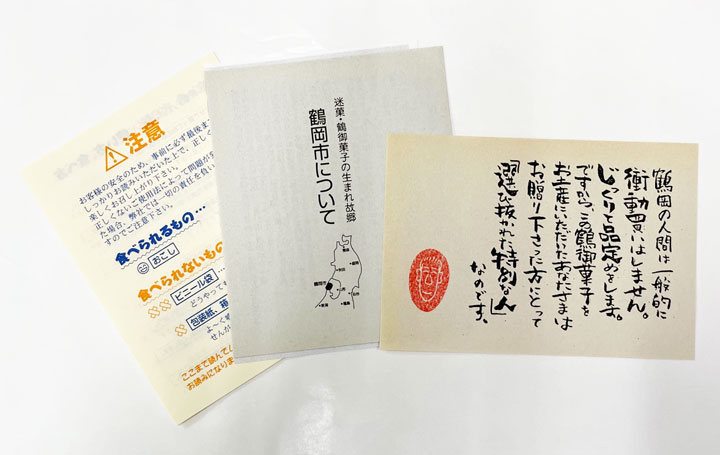 注意
お客様の安全のため、事前に必ず最後ま
しっかりお読みいただいた上で、正しく
楽しくお召し上がり下さい。
正しくないご使用法によって問題が
た場合、弊社では一切の責任を負い
すのでご注意下さい。
食べられるもの…
おこし
食べられないもの
ビニール袋…
どうやって
包装紙、箱
よ〜く
せんが
ここまで読んで
お読みになりま
迷菓・鶴御菓子の生まれ故郷
鶴岡市について
鶴岡市
鶴岡の人間は一般的に
衝動買いはしません。
じっくりと品定めをします。
ですから、この鶴御菓子を
お土産にいただいたあなたさまは
お贈り下さった方にとって
「選び抜かれた特別な人」
なのです。